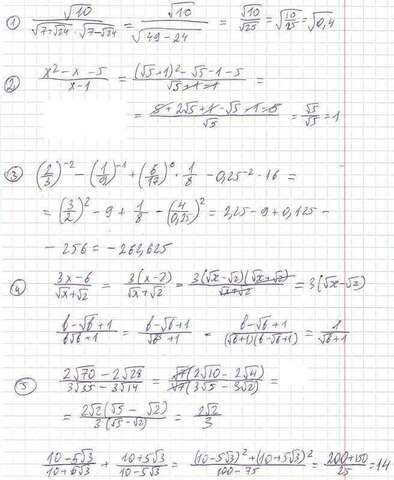 ① √10 / (√7+√24 · √7-√24) = √10 / √(49-24) = √10/√25 = √(10/25) = √0,4
② (x²-x-5)/(x-1) = ((√5+1)²-√5-1-5)/(√5+1-1) =
= (5+2√5+1-√5-1-5)/√5 = √5/√5 = 1
③ (2/3)⁻² - (1/9)⁻¹ + (6/17)⁰ · 1/8 - 0,25⁻² · 16 =
= (3/2)² - 9 + 1/8 - (4/0,25)² = 2,25-9+0,125 -
- 256 = -262,625
④ (3x-6)/(√x+√2) = 3(x-2)/(√x+√2) = 3(√x-√2)(√x+√2)/(√x+√2) = 3(√x-√2)
(b-√b+1)/(b√b+1) = (b-√b+1)/(√b³+1) = (b-√b+1)/((√b+1)(b-√b+1)) = 1/(√b+1)
⑤ (2√70-2√28)/(3√35-3√14) = √7(2√10-2√4)/(√7(3√5-3√2)) =
= 2√2(√5-√2)/(3(√5-√2)) = 2√2/3
(10-5√3)/(10+5√3) + (10+5√3)/(10-5√3) = ((10-5√3)²+(10+5√3)²)/(100-75) = (200+150)/25 = 14